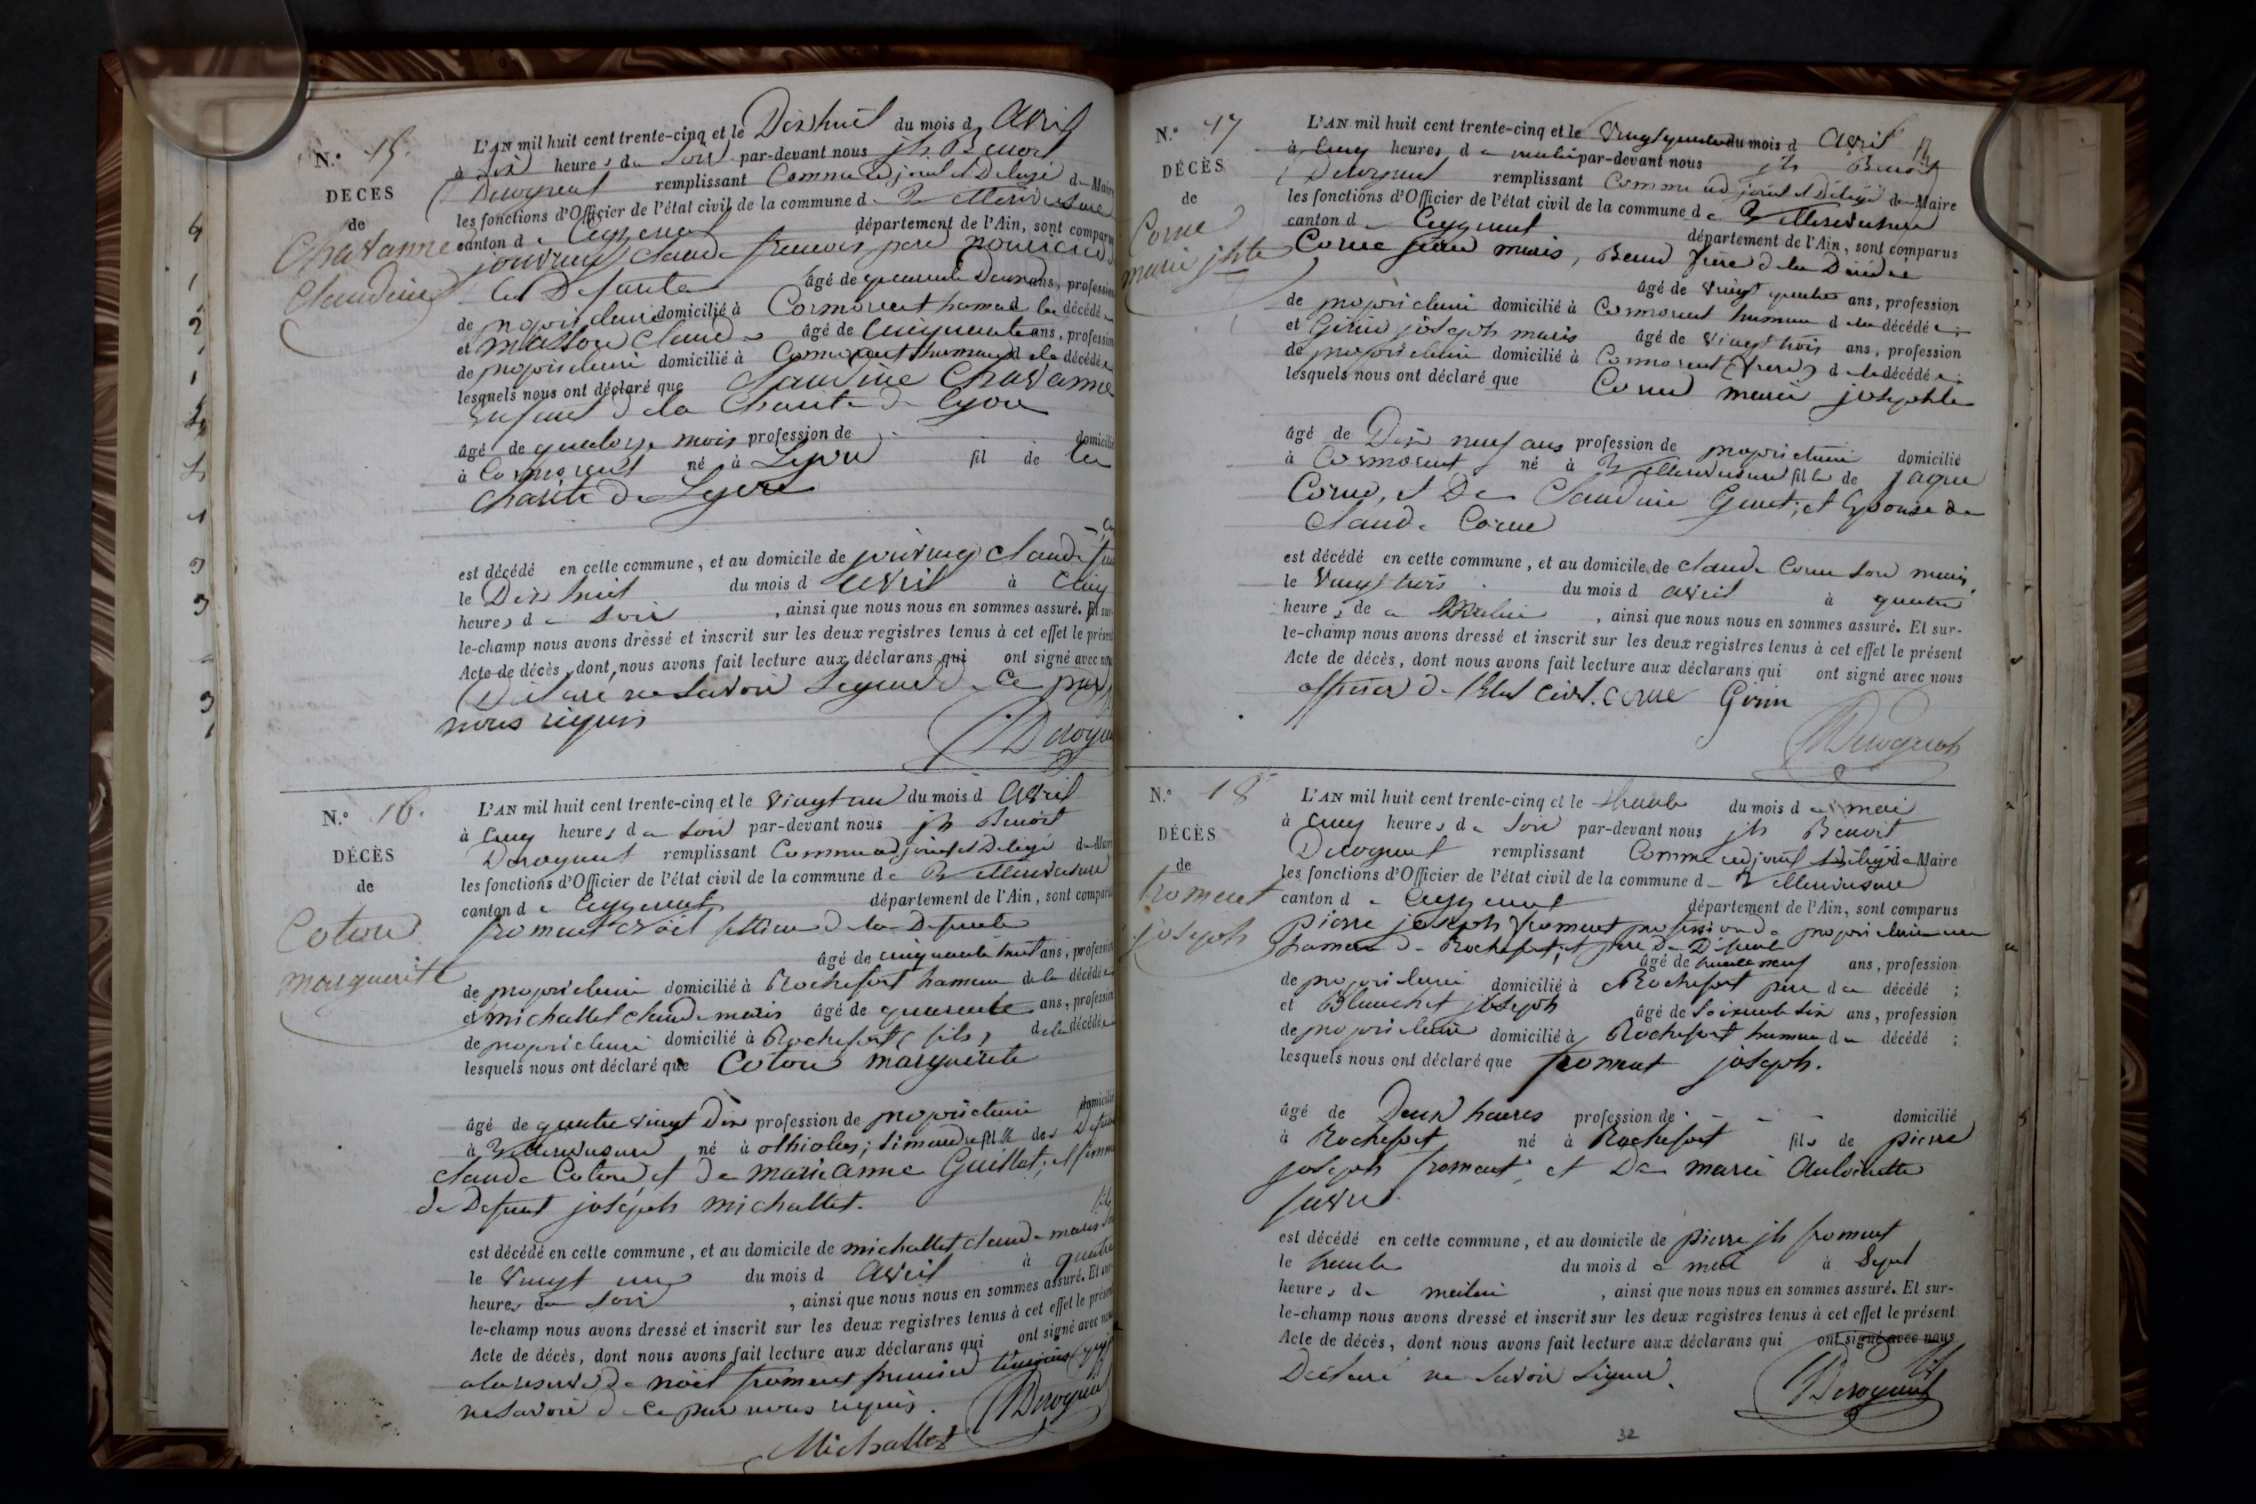 N.° 15.
DÉCÈS
de
Chavanne
Claudine
L'AN mil huit cent trente-cinq et le Dixhuit du mois d avril
à six heures de soir par-devant nous jh Benoit
remplissant Comme adjoint et Délégé de Maire
les fonctions d'Officier de l'état civil de la commune de Villereversure
canton de Ceyzeriat département de l'Ain, sont comparus
claude francois pere nourricier
de la Défunte âgé de quarante Deux ans, profession
de propriétaire domicilié à Cormorent hameau de la décédée
et masson claude âgé de cinquante ans, profession
de propriétaire domicilié à Cormorent hameau de la décédée
lesquels nous ont déclaré que Claudine Chavanne
enfant de la Charité de Lyon
âgé de quatorze mois profession de - domicilié
à Cormorent né à Lyon fil de la
charité de Lyon
est décédé en cette commune, et au domicile de claude
le Dix huit du mois d avril à cinq
heures de soir, ainsi que nous nous en sommes assuré. Et sur-
le-champ nous avons dressé et inscrit sur les deux registres tenus à cet effet le présent
Acte de décès, dont nous avons fait lecture aux déclarans qui ont signé avec nous
Déclaré ne savoir signer de ce par
nous requis
N.° 16.
DÉCÈS
de
Coton
marguerite
L'AN mil huit cent trente-cinq et le vingt un du mois d avril
à cinq heures de soir par-devant nous jh Benoit
remplissant Comme adjoint et Délégé de Maire
les fonctions d'Officier de l'état civil de la commune de Villereversure
canton de Ceyzeriat département de l'Ain, sont comparus
froment noël de la Défunte
âgé de cinquante huit ans, profession
de propriétaire domicilié à Rochefort hameau de la décédée
et michallet claude marie âgé de quarante ans, profession
de propriétaire domicilié à Rochefort (fils) de la décédée
lesquels nous ont déclaré que Coton marguerite
âgé de quatre vingt Dix profession de propriétaire domicilié
à Villereversure né à fille de Défunt
claude Coton et de marianne Guillot; et femme
de Defunt joséph michallet.
est décédé en cette commune, et au domicile de michallet claude marie
le vingt un du mois d avril à quatre
heures de soir, ainsi que nous nous en sommes assuré. Et sur-
le-champ nous avons dressé et inscrit sur les deux registres tenus à cet effet le présent
Acte de décès, dont nous avons fait lecture aux déclarans qui ont signé avec nous
a la reserve de noël froment premier témoin
ne savoir de ce par nous requis.
Michallet
N.° 17
DÉCÈS
de
Corne
marie jphte
L'AN mil huit cent trente-cinq et le vingt quatre du mois d avril
à cinq heures de matin par-devant nous jh Benoit
remplissant Comme adjoint et Délégé de Maire
les fonctions d'Officier de l'état civil de la commune de Villereversure
canton de Ceyzeriat département de l'Ain, sont comparus
Corne jean marie, Beau frère de la Décédée
âgé de vingt quatre ans, profession
de propriétaire domicilié à Cormorent hameau de la décédée;
et Girin joseph marie âgé de vingt trois ans, profession
de propriétaire domicilié à Cormorent de la décédée;
lesquels nous ont déclaré que Corne marie josephte
âgé de Dix neuf ans profession de propriétaire domicilié
à Cormorent né à Villereversure fille de jaque
Corne, et De Claudine ; et Epouse de
claude Corne
est décédé en cette commune, et au domicile de claude Corne son mari,
le vingt trois du mois d avril à quatre
heures de matin, ainsi que nous nous en sommes assuré. Et sur-
le-champ nous avons dressé et inscrit sur les deux registres tenus à cet effet le présent
Acte de décès, dont nous avons fait lecture aux déclarans qui ont signé avec nous
officier de l'Etat civil. corne Girin
N.° 18
DÉCÈS
de
froment
joseph
L'AN mil huit cent trente-cinq et le trente du mois de mai
à cinq heures de soir par-devant nous jh Benoit
remplissant Comme adjoint délégé de Maire
les fonctions d'Officier de l'état civil de la commune d Villereversure
canton de Ceyzeriat département de l'Ain, sont comparus
pierre joseph froment profession de propriétaire au
hameau de Rochefort, et père de Défunt
âgé de trente neuf ans, profession
de propriétaire domicilié à Rochefort pere de décédé;
et Blanchet joseph âgé de Soixante six ans, profession
de propriétaire domicilié à Rochefort hameau de décédé;
lesquels nous ont déclaré que froment joseph.
âgé de Deux heures profession de - - - domicilié
à Rochefort né à Rochefort fils de pierre
joseph froment, et De marie Antoinette
favre
est décédé en cette commune, et au domicile de pierre jh froment
le trente du mois de mai à Sept
heures de matin, ainsi que nous nous en sommes assuré. Et sur-
le-champ nous avons dressé et inscrit sur les deux registres tenus à cet effet le présent
Acte de décès, dont nous avons fait lecture aux déclarans qui ont signé avec nous
Déclaré ne savoir signer.
32